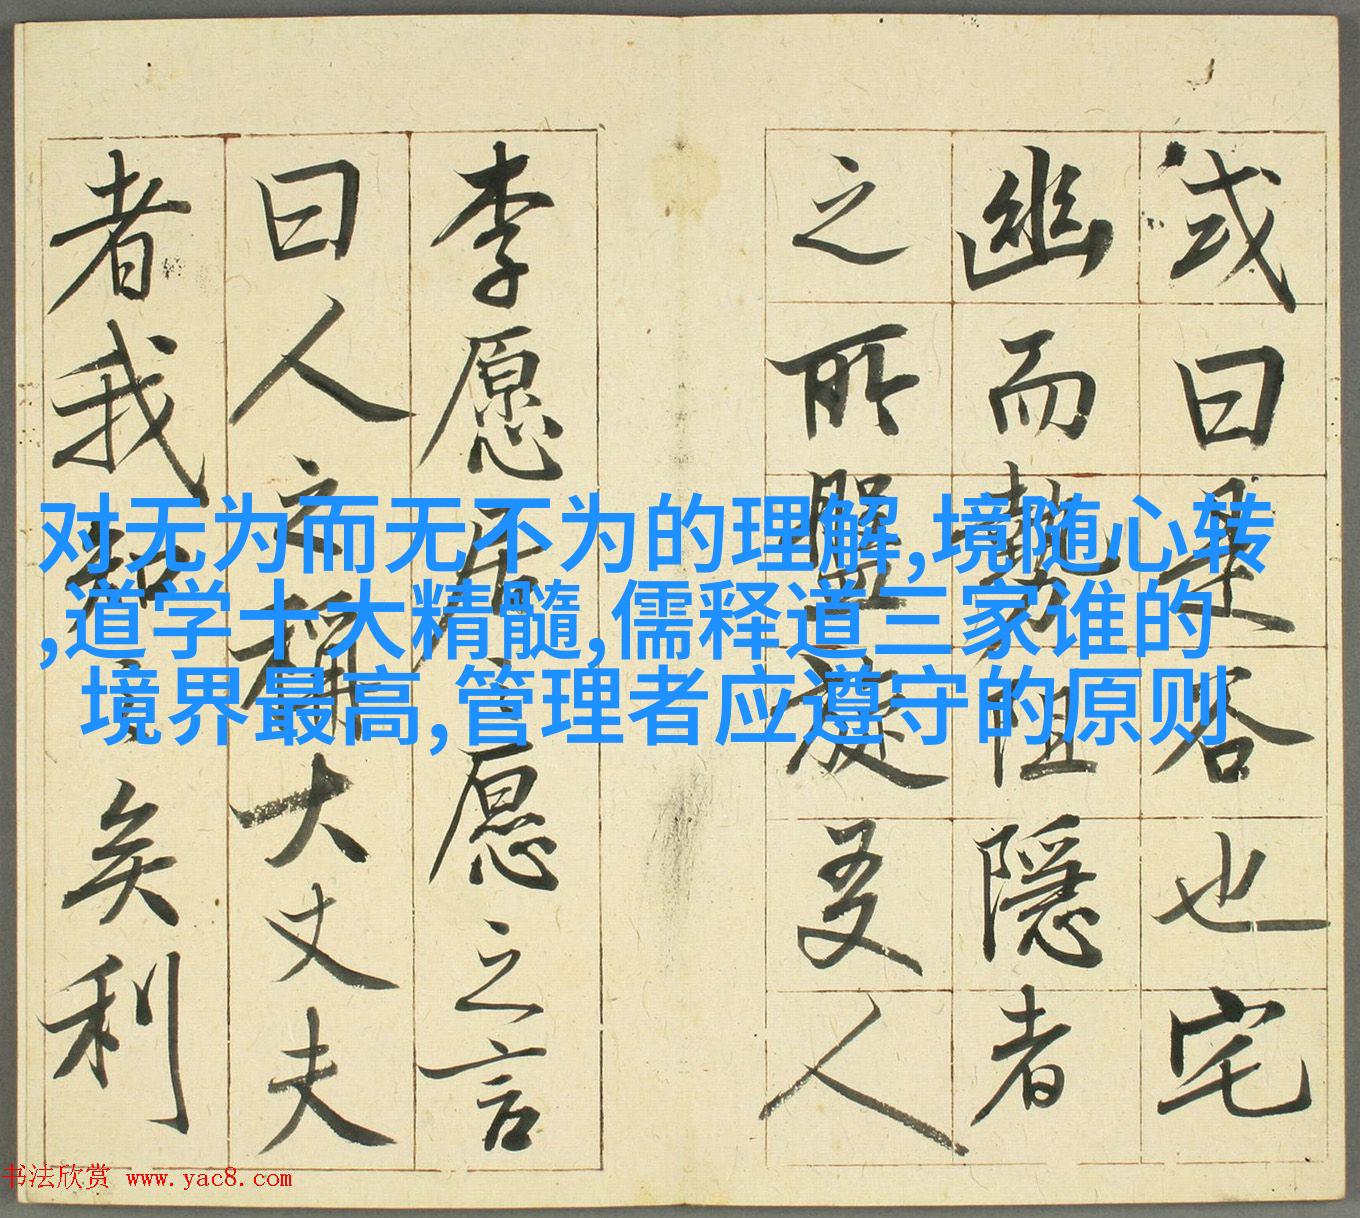 或曰是谷也宅
幽而勢阻隱者
之所盤旋友人
李愿居之愿之言
曰人之稱大丈夫
者我知之矣利
对无为而无不为的理解,境随心转
,道学十大精髓,儒释道三家谁的
境界最高,管理者应遵守的原则
书法欣赏 www.yac8.com